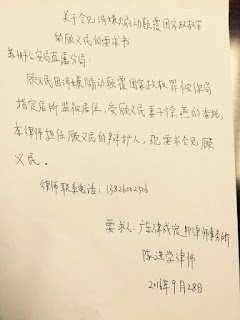 关于会见涉嫌煽动颠覆国家政权罪
的顾义民的要求书
苏州公安局直属分局：
顾义民因涉嫌煽动颠覆国家政权罪被你局
指定居所监视居住，受顾义民妻子徐燕的委托，
本律师担任顾义民的辩护人，现要求会见顾
义民。
律师联系电话：13826002506
要求人：广东律成定邦律师事务所
陈进学律师
2016年9月28日